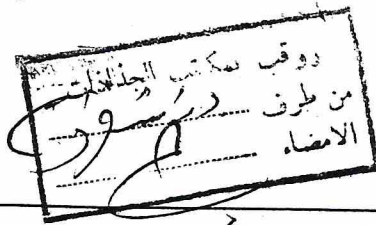 روقب بمكتب الجذاذات
من طرف
الامضاء